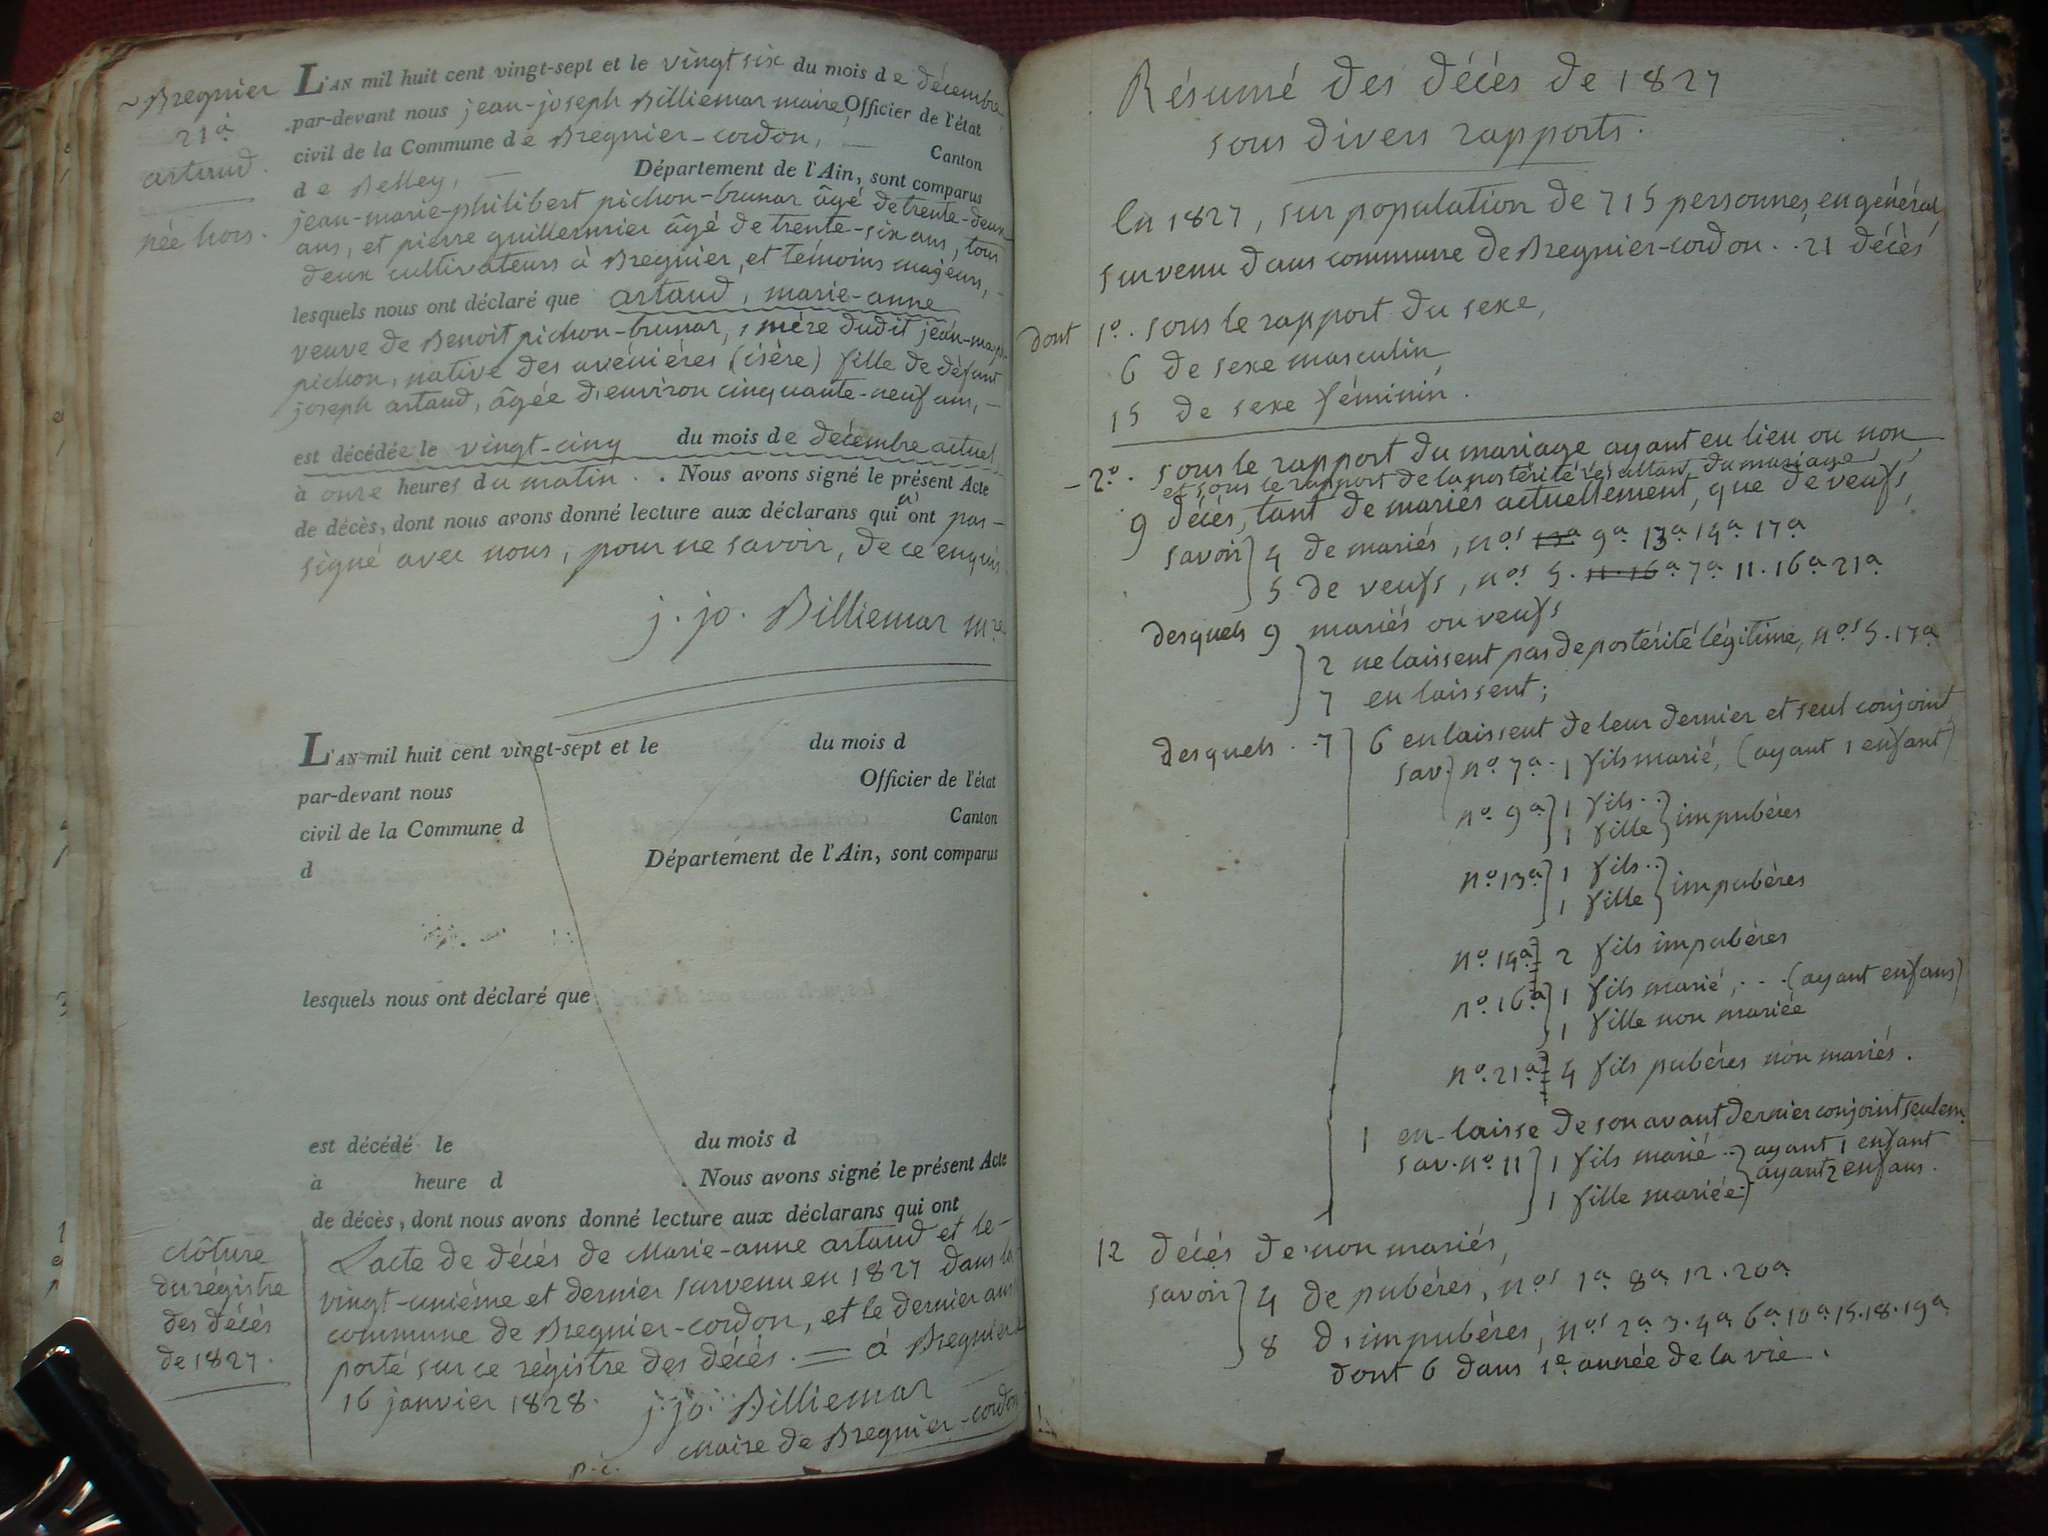 ~ Bregnier
21ª
artaud.
née hors.
L'AN mil huit cent vingt-sept et le vingt six du mois de décembre
par-devant nous jean-joseph Billiemar maire, Officier de l'état
civil de la Commune de Bregnier-cordon, Canton
de Belley, Département de l'Ain, sont comparus
jean-marie-philibert pichon-brunar âgé de trente-deux
ans, et pierre guillermier âgé de trente-six ans, tous
deux cultivateurs à Bregnier, et témoins majeurs,
lesquels nous ont déclaré que artaud, marie-anne
veuve de Benoit pichon-brunar, mère dudit jean-marie
pichon, native des avenières (isère) fille de défunt
joseph artaud, âgée d'environ cinquante-neuf ans,
est décédée le vingt-cinq du mois de décembre actuel
à onze heures du matin. . Nous avons signé le présent Acte
de décès, dont nous avons donné lecture aux déclarans qui n'ont pas
signé avec nous, pour ne savoir, de ce enquis
j. jo. Billiemar mre
L'AN mil huit cent vingt-sept et le du mois d
par-devant nous Officier de l'état
civil de la Commune d Canton
d Département de l'Ain, sont comparus
lesquels nous ont déclaré que
est décédé le du mois d
à heure d . Nous avons signé le présent Acte
de décès, dont nous avons donné lecture aux déclarans qui ont
clôture
du régistre
des décès
de 1827.
L'acte de décès de Marie-anne artaud est le
vingt-unième et dernier survenu en 1827 dans la
commune de Bregnier-cordon, et le dernier aussi
porté sur ce régistre des décès. = à Bregnier
16 janvier 1828. j. jo. Billiemar
Maire de Bregnier-cordon
p.c.
Résumé des décès de 1827
sous divers rapports.
En 1827, sur population de 715 personnes, en général,
survenu dans commune de Bregnier-cordon . . 21 décès
dont 1º. sous le rapport du sexe,
6 de sexe masculin
15 de sexe féminin.
- 2º. sous le rapport du mariage ayant eu lieu ou non,
et sous le rapport de la postérité résultant du mariage
9 décès, tant de mariés actuellement, que de veufs,
savoir } 4 de mariés, nos 13ª 9ª 13ª 14ª 17ª
5 de veufs, nos 5. 11. 16ª 7ª 11. 16ª 21ª
desquels 9 mariés ou veufs
2 ne laissent pas de postérité légitime, nos 5. 17ª
7 en laissent;
desquels . . 7 } 6 en laissent de leur dernier et seul conjoint
sav. } nº 7ª . 1 fils marié, (ayant 1 enfant)
nº 9ª } 1 fils . . } impubères
1 fille
nº 13ª } 1 fils . . } impubères
1 fille
nº 14ª } 2 fils impubères
nº 16ª } 1 fils marié, . . . (ayant enfans)
1 fille non mariée
nº 21ª } 4 fils pubères non mariés.
1 en laisse de son avant dernier conjoint seulem.
sav. nº 11 } 1 fils marié . . } ayant 1 enfant
1 fille mariée . } ayant 2 enfans.
12 décès de non mariés,
savoir } 4 de pubères, nos 1ª 8ª 12. 20ª
8 d'impubères, nos 2ª 3. 4ª 6ª 10ª 15. 18. 19ª
dont 6 dans 1e année de la vie.